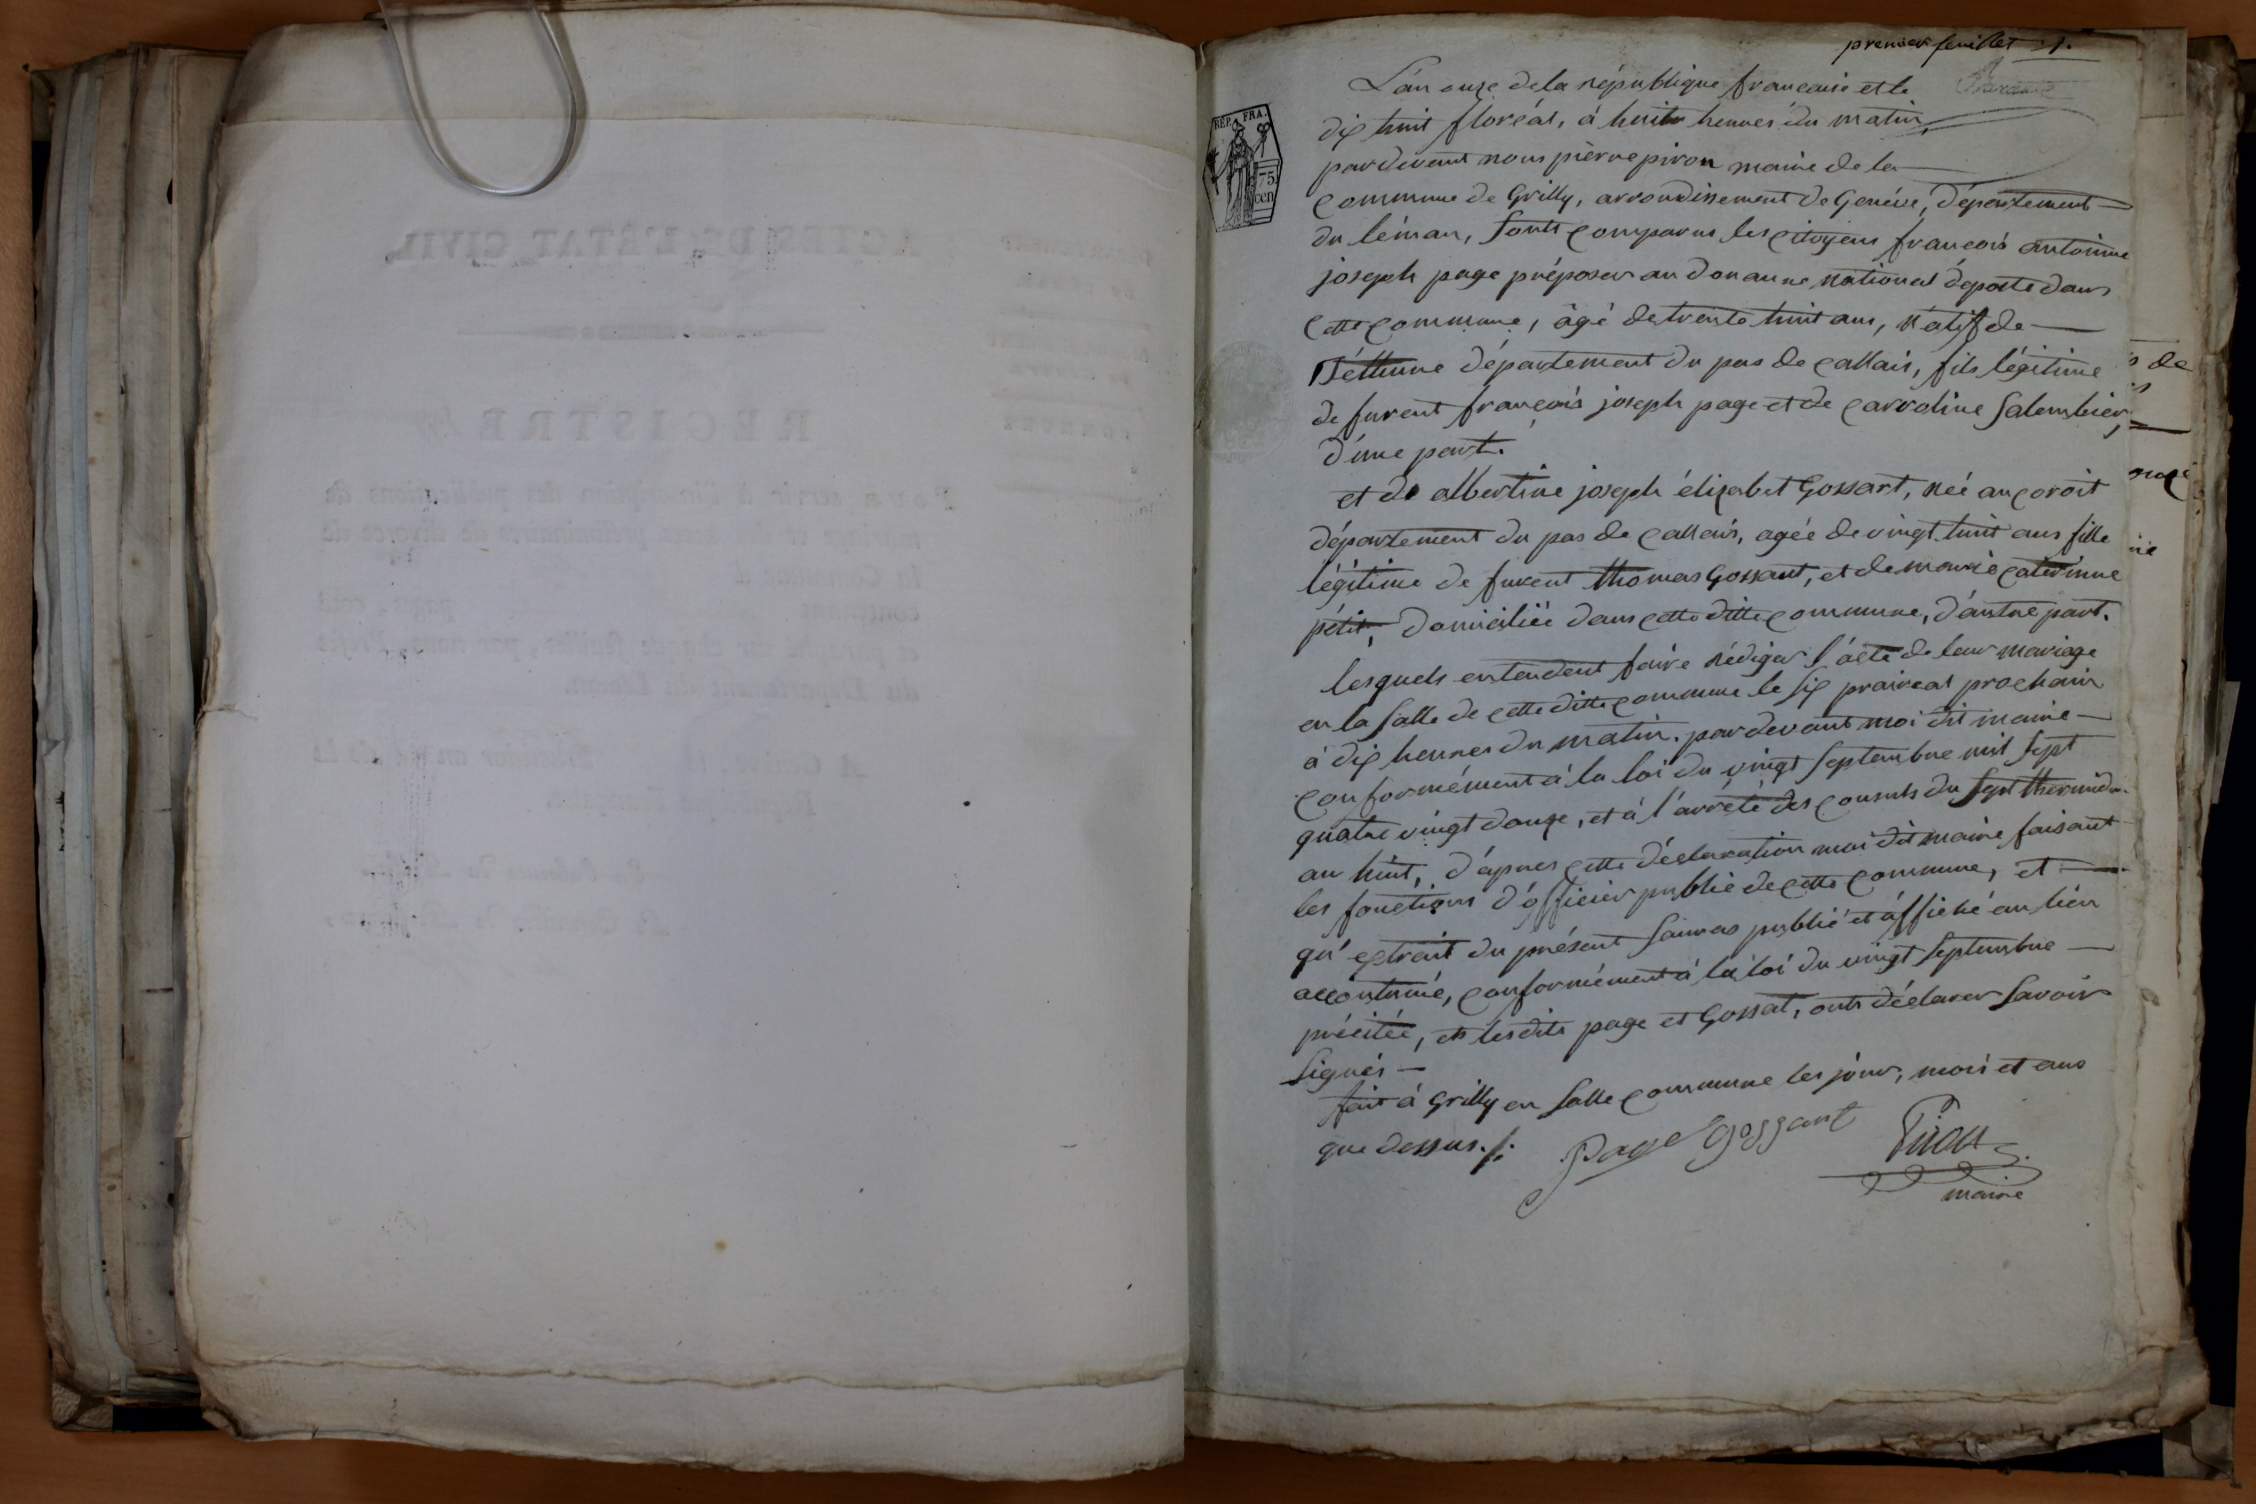 premier feuillet 1.
L'an onze de la république françaisé et le
dix huit floréal, à huits heures du matin,
pardevant nous pièrre piron maire de la
commune de Grilly, arrondissement de Genéve, département
du léman, sonts comparus les citoyens françois antoinne
joseph page préposer au douanne national déposte dans
cette commune, âgé de trente huit ans, natif de
Béthune département du pas de callais, fils légitime
de furent françois joseph page et de carroline Salembier,
d'une part.
et de albertine joseph élizabet Gossart, née au
département du pas de callais, agée de vingt huit ans fille
légitime de furent thomas Gossart, et de marie caterinne
pétit, domiciliée dans cette ditte commune, d'autre part.
lesquels entendent faire rédiger l'acte de leur mariage
en la salle de cette ditte commune le six praireal prochain
à dix heures du matin. pardevant moi dit maire
conformément à la loi du vingt septembre mil sept
quatre vingt douze, et à l'arrêté des consuls du sept thermidor
an huit, d'àpres cette déclaration moi dit maire faisant
les fonctions d'officier public de cette commune, et
qu'extrait du présent sauras publié et àffiché au lieu
accoutumé, conformément à la loi du vingt septembre
précitée, et lesdits page et Gossat, onts déclarer savoir
signés
fait à Grilly en salle commune les jour, mois et ans
que dessus.
page gossart Piron
maire
RÉP. FRA.
75
cen
ACTES DE L'ÉTAT CIVIL
REGISTRE